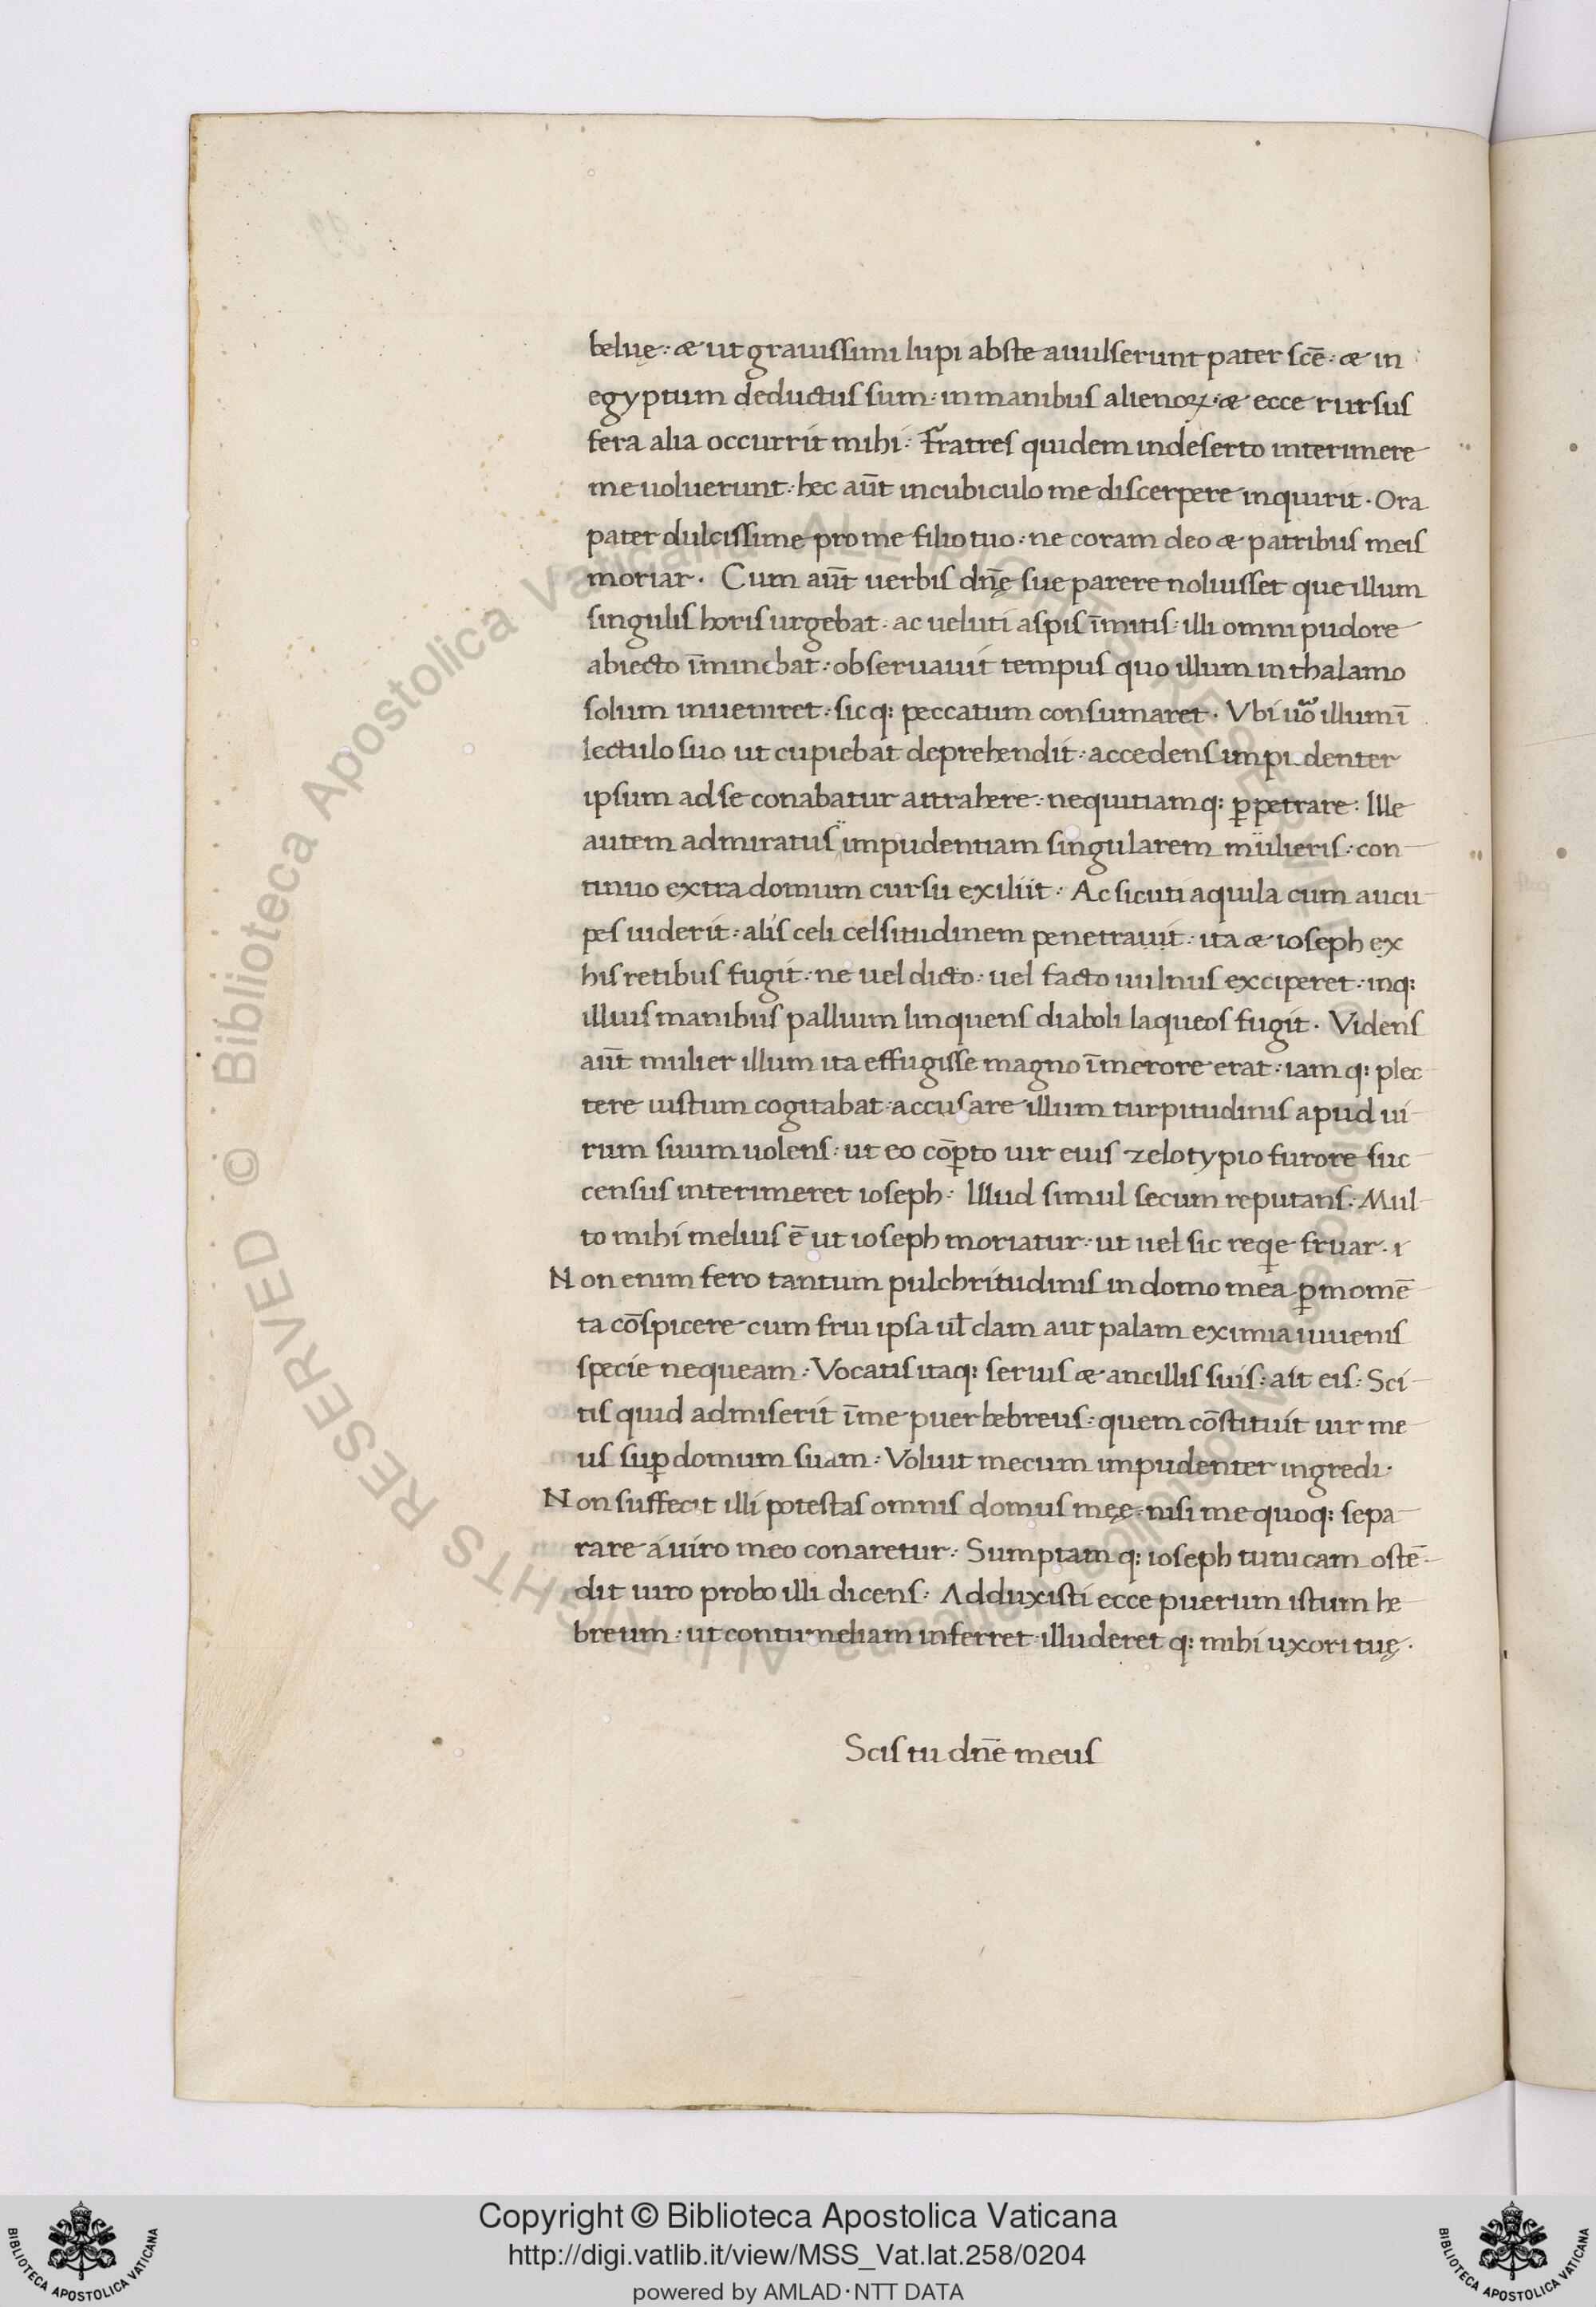 beluę: & ut grauissimi lupi abste auulserunt pater scē: & in
egyptum deductus sum: in manibus alienoꝝ: & ecce rursus
fera alia occurrit mihi: Fr̄atres quidem indeserto interimere
me uoluerunt: hec aūt incubiculo me discerpere inquirit. Ora
pater dulcissime pro me filio tuo: ne coram deo & patribus meis
moriar. Cum aūt uerbis dnę̄ sue parere noluisset que illum
singulis horis urgebat. ac ueluti aspis īmitis: illi omni pudore
abiecto īminebat: obseruauit tempus quo illum in thalamo
solum inueniret: sicq: peccatum consumaret. Vbi uoᷓ illum ī
lectulo suo ut cupiebat deprehendit: accedens impudenter
ipsum adse conabatur attrahere: nequitiamq: ꝑpetrare: Ille
autem admiratus impudentiam singularem mulieris: con
tinuo extra domum cursu exiliit: Ac sicuti aquila cum aucu
pes uiderit: alis celi celsitudinem penetrauit: ita & ioseph ex
his retibus fugit: ne uel dicto: uel facto uulnus exciperet: inq:
illius manibus pallium linquens diaboli laqueos fugit. Videns
aūt mulier illum ita effugisse magno īmerore erat: iam q: plec
tere iustum cogitabat: accusare illum turpitudinis apud ui
rum suum uolens: ut eo cōꝑto uir eius zelotypio furore suc
census interimeret ioseph: Illud simul secum reputans: Mul
to mihi melius ē ut ioseph moriatur: ut uel sic reqe fruar. i
Non enim fero tantum pulchritudinis in domo mea ꝑmomē
ta cōspicere cum frui ipsa uł clam aut palam eximia iuuenis
specie nequeam: Vocatis itaq: seruis & ancillis suis: ait eis: Sci
tis quid admiserit īme puer hebreus: quem cōstituit uir me
us suꝑ domum suam: Voluit mecum impudenter ingredi.
Non suffecit illi potestas omnis domus męę: nisi me quoq: sepa
rare á uiro meo conaretur: Sumptam q: ioseph tunicam ostē
dit uiro probo illi dicens: Adduxisti ecce puerum istum he
breum: ut contumeliam inferret: illuderet q: mihi uxori tuę.
Scis tu dnē meus
Copyright © Biblioteca Apostolica Vaticana
http://digi.vatlib.it/view/MSS_Vat.lat.258/0204
powered by AMLAD·NTT DATA
BIBLIOTECA APOSTOLICA VATICANA
BIBLIOTECA APOSTOLICA VATICANA
Biblioteca Apostolica Vaticana ALL RIGHTS RESERVED ©